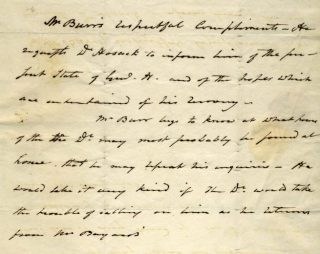 Mr Burr's respectful Compliments – He
requests Dr Hosack to inform him of the pre-
sent State of Genl. H. and of the hopes which
are entertained of his recovery –
Mr Burr begs to know at what hour
of the Dr. may most probably be found at
home, that he may repeat his enquiries – He
would take it very kind if the Dr. would take
the trouble of calling on him as he returns
from Mr Bayard's